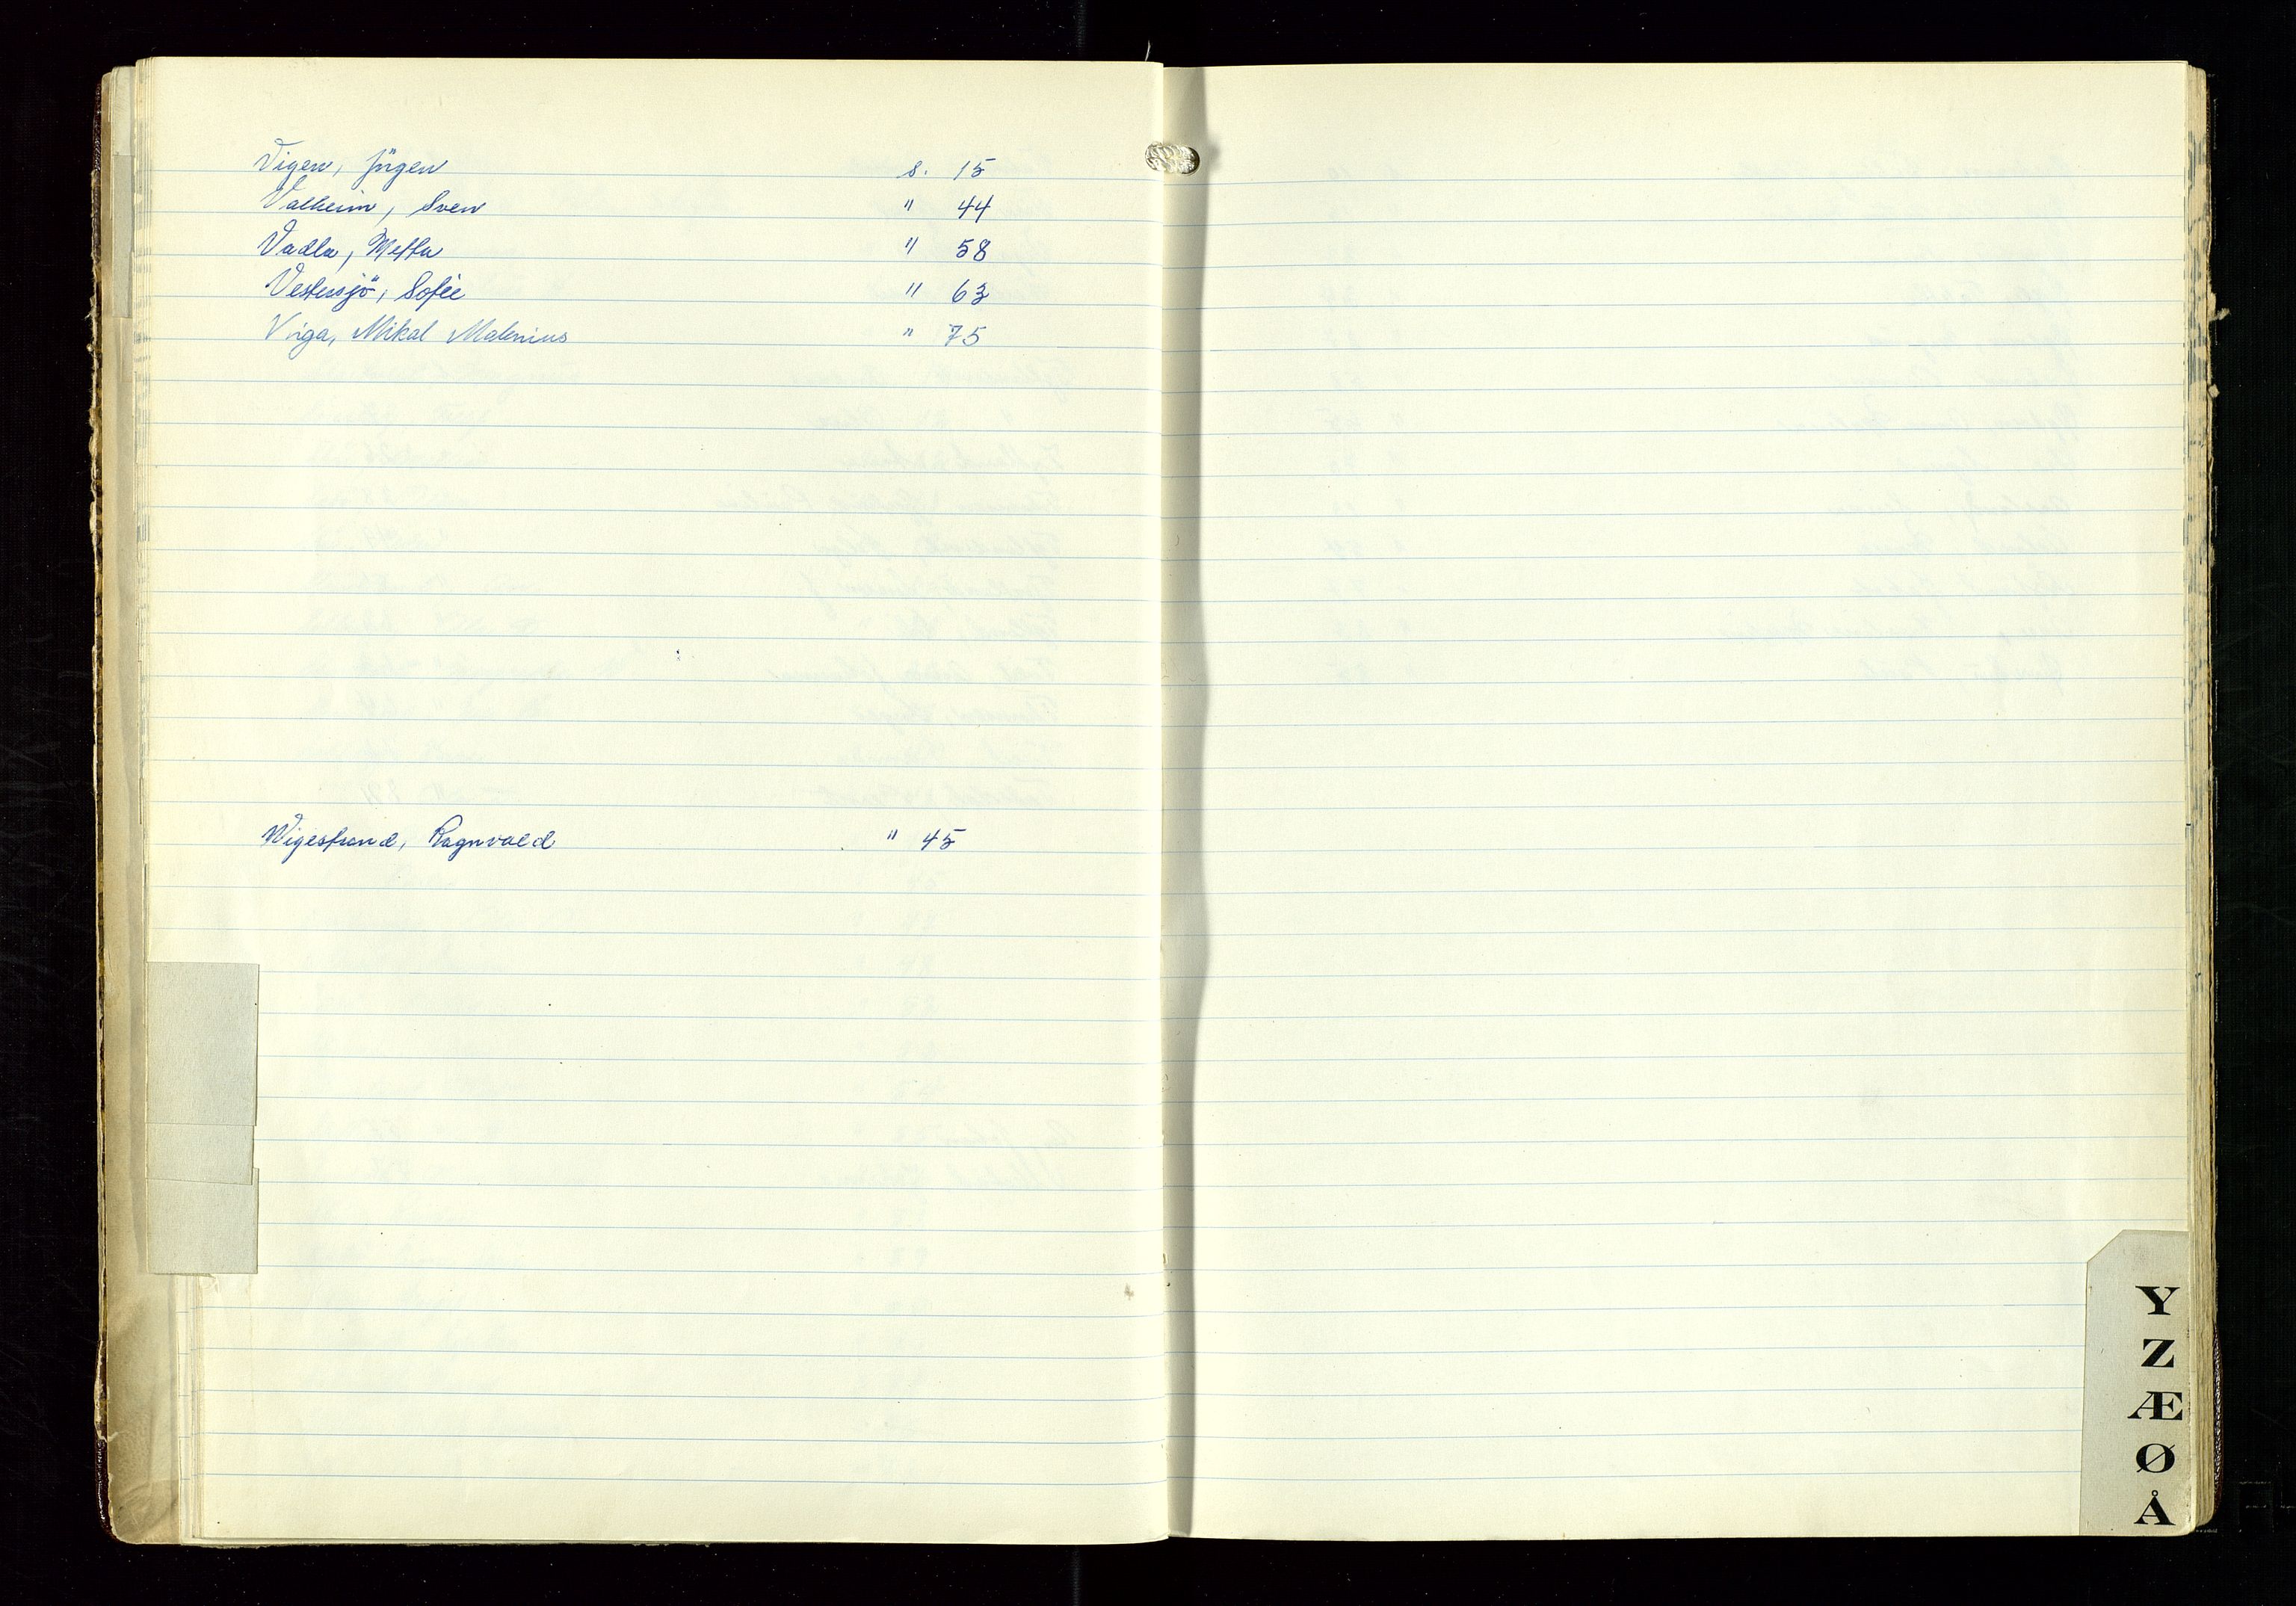 Vigen, Jörgen s. 15
Valheim, Sven " 44
Vadla, Metta " 58
Vestersjö, Sofie " 63
Viga, Mikal Malenius " 75
Wigestrand, Ragnvald " 45
Y
Z
Æ
Ø
Å